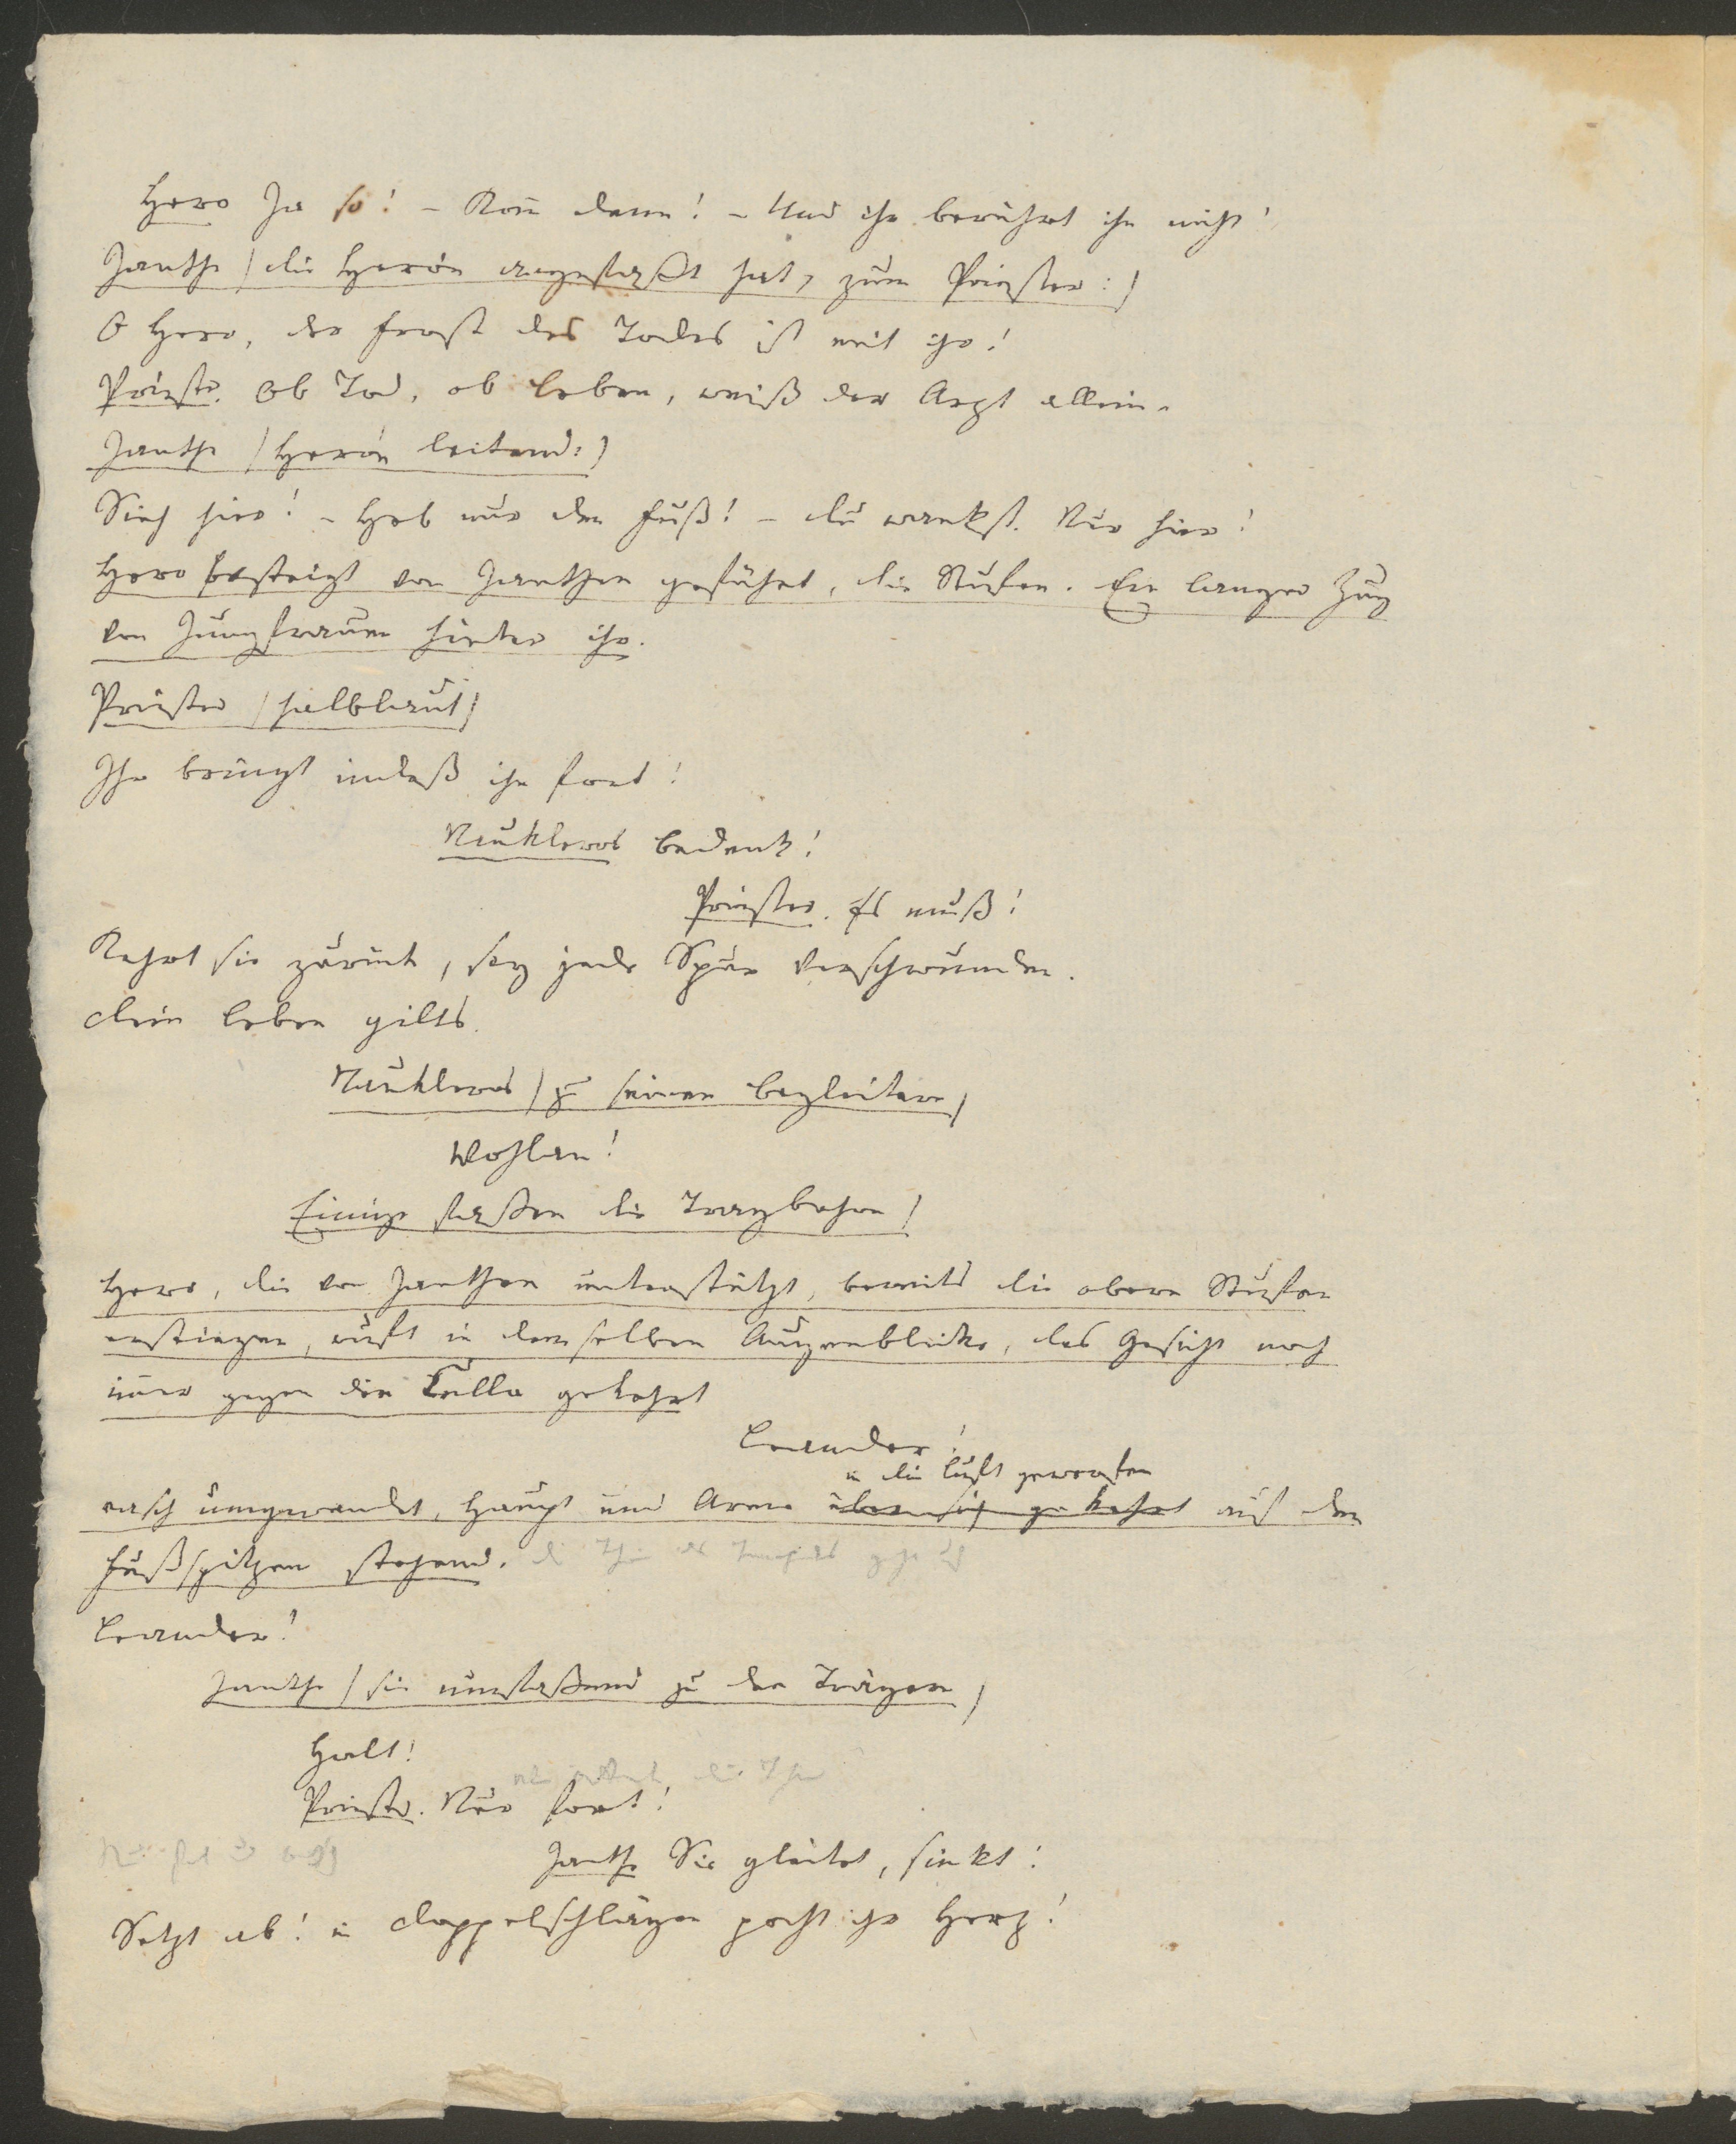 Hero Ja so! – Kom̄ denn! – Und ihr berührt ihn nicht!
Janthe /die Heron angefaßt hat, zum Priester:/
O Herr, der Frost des Todes ist mit ihr!
Priester. Ob Tod, ob Leben, weiß der Arzt allein.
Janthe /Heron leitend:/
Sieh hier! – Heb nur den Fuß! – du wankst. Nur hier!
Hero besteigt von Janthen geführt, die Stufen. Ein langer Zug
von Jungfrauen hinter ihr.
Priester /halblaut/
Ihr bringt indeß ihn fort!
Naukleros bedenk!
Priester. Es muß!
Kehrt sie zurück, sey jede Spur verschwunden.
Dein Leben gilts.
Naukleros /zu seinen Begleitern/
Wohlan!
Einige faßen die Tragbahre/
Hero, die von Janthen unterstützt, bereits die obern Stufen
erstiegen, ruft in demselben Augenblicke, das Gesicht noch
im̄er gegen die Cella gekehrt
Leander!
in die Luft geworfen
rasch umgewandt, Haupt und Arme über sich gekehrt auf den
Fußspitzen stehend. die Thür des
Leander!
Janthe /sie umfaßend zu den Trägern/
Halt!
die
Priester. Nur fort!
Janthe Sie gleitet, sinkt!
Setzt ab! in Doppelschlägen pocht ihr Herz!